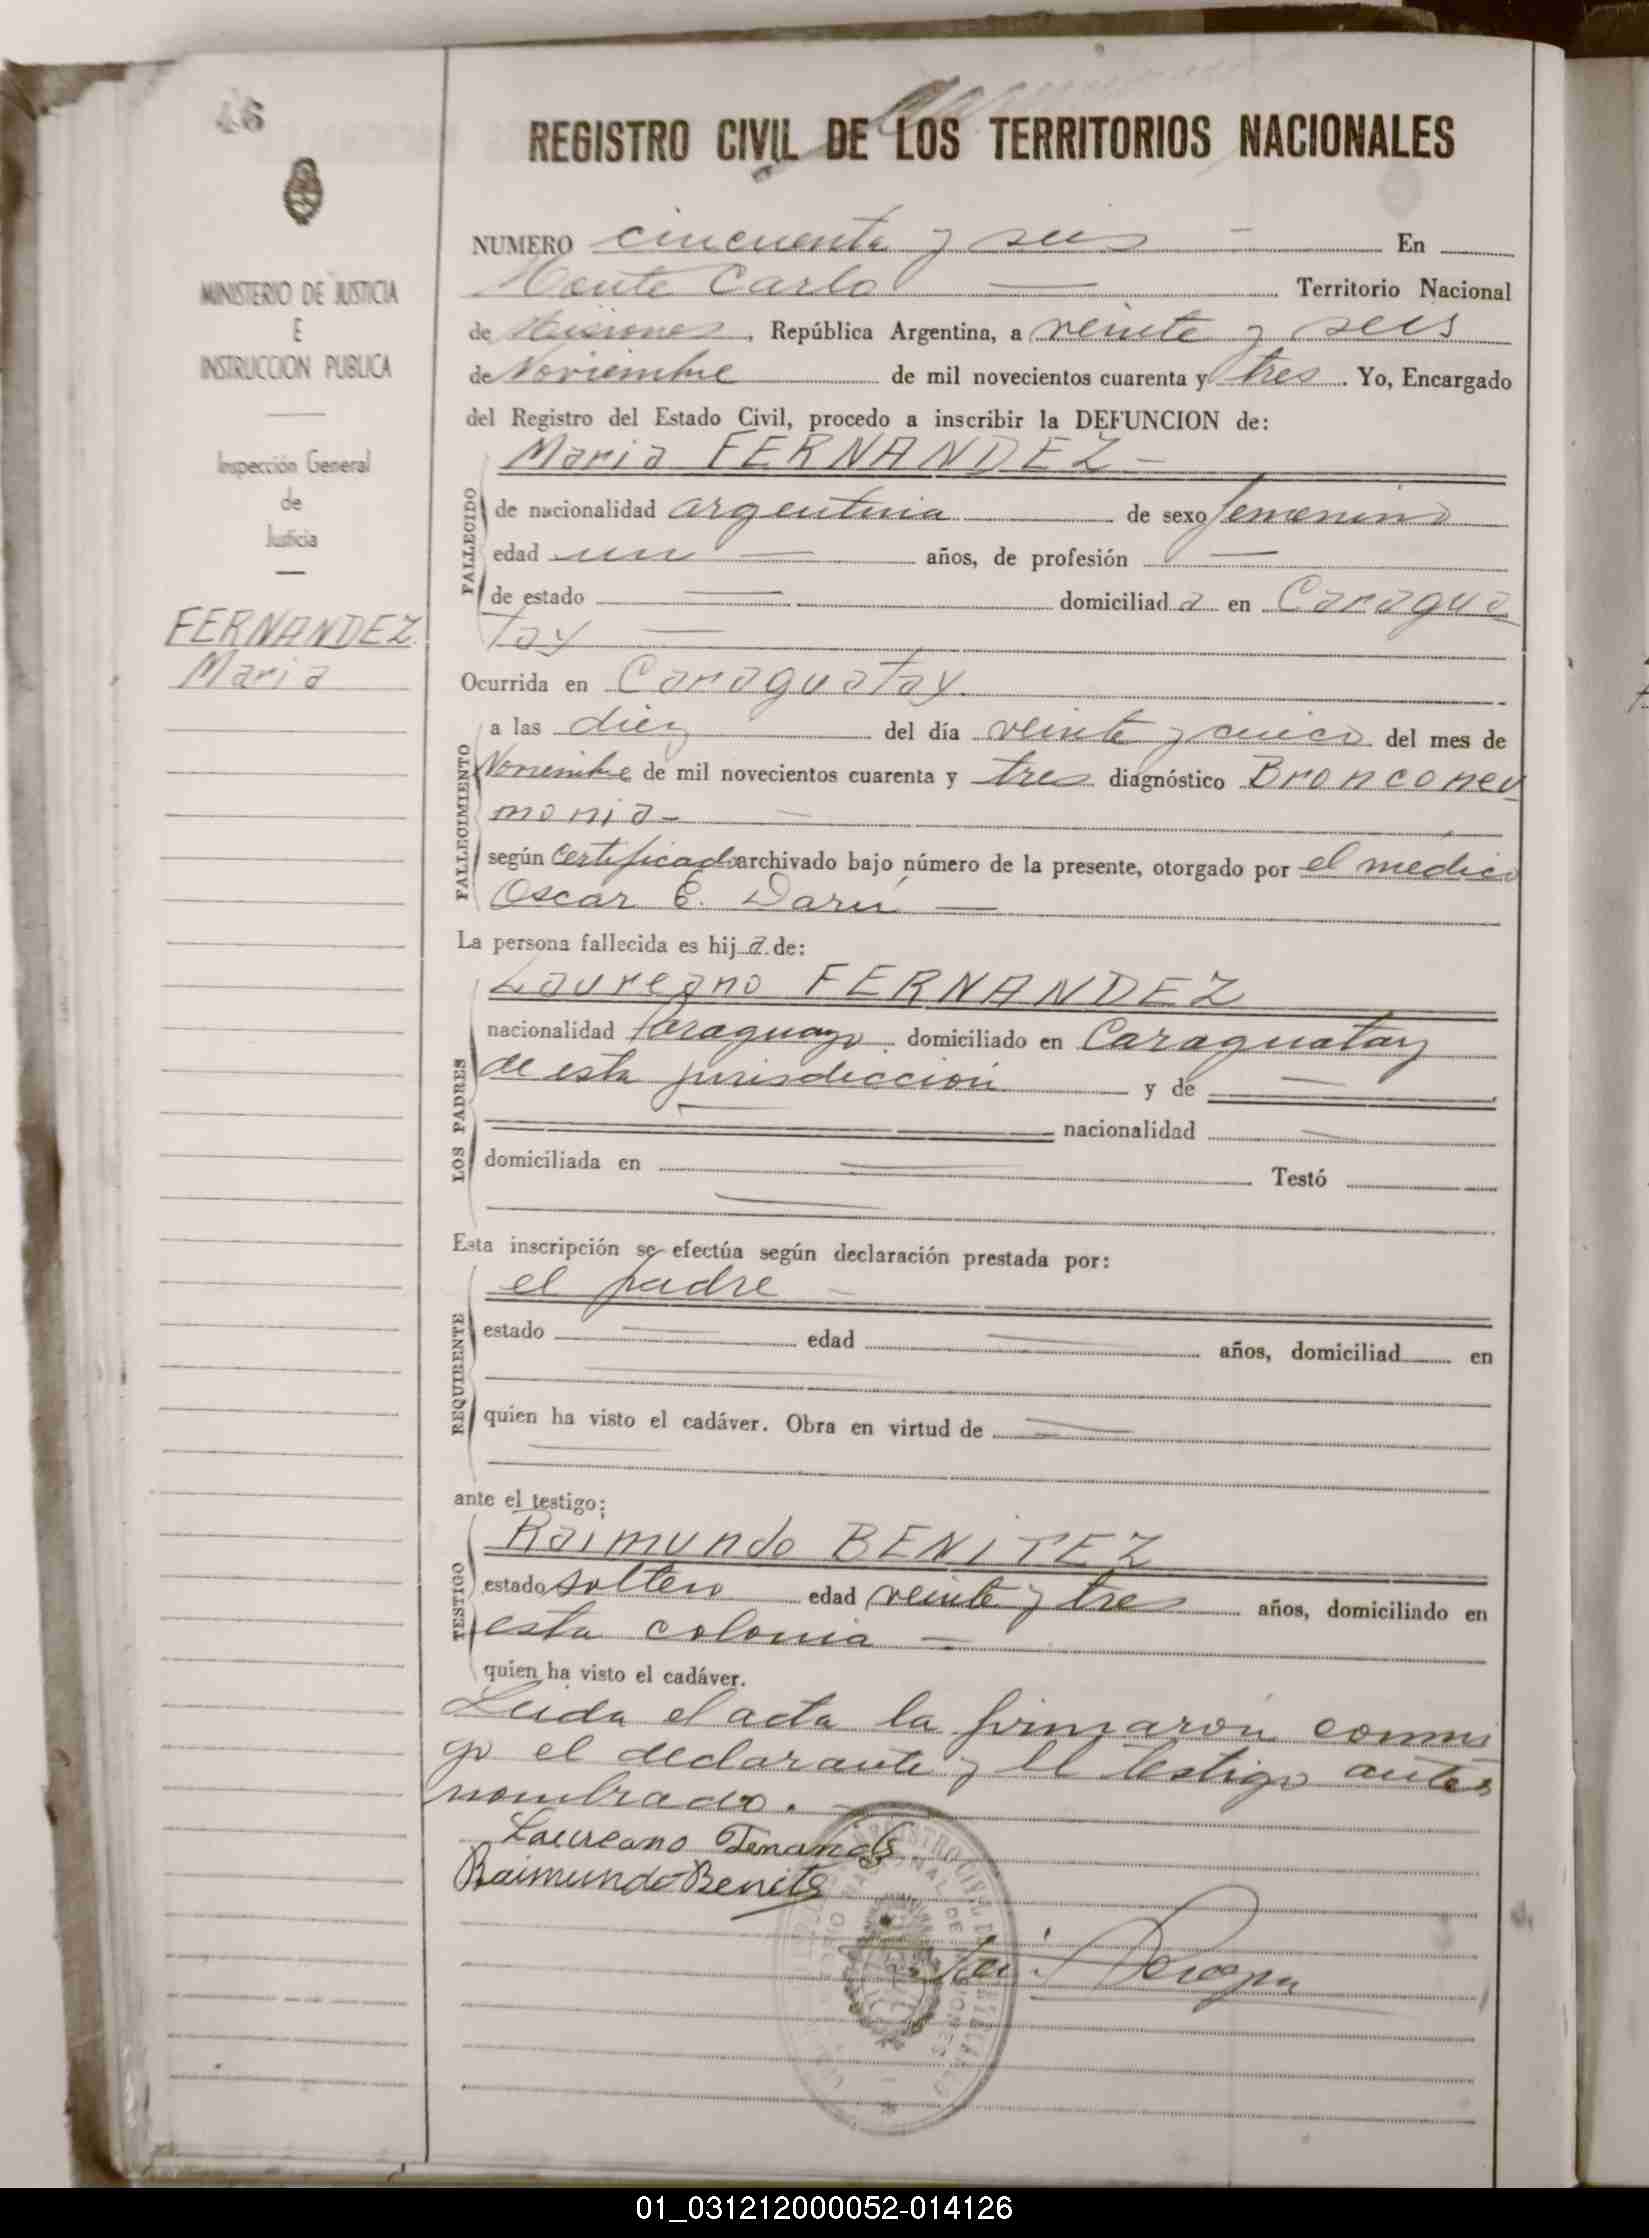 46
REGISTRO CIVIL DE LOS TERRITORIOS NACIONALES
MINISTERIO DE JUSTICIA
E
INSTRUCCION PUBLICA
Inspección General
de
Justicia
FERNANDEZ
Maria
NUMERO cincuenta y seis En
Monte Carlo Territorio Nacional
de Misiones, República Argentina, a veinte y seis
de Noviembre de mil novecientos cuarenta y tres. Yo, Encargado
del Registro del Estado Civil, procedo a inscribir la DEFUNCION de:
Maria FERNANDEZ
FALLECIDO
de nacionalidad argentina de sexo femenino
edad un años, de profesión
de estado domiciliada en Caragua
tay
Ocurrida en Caraguatay.
FALLECIMIENTO
a las diez del día veinte y cinco del mes de
Noviembre de mil novecientos cuarenta y tres diagnóstico Bronconeu
monia
según Certificado archivado bajo número de la presente, otorgado por el médico
Oscar E. Darú
La persona fallecida es hija de:
LOS PADRES
Laureano FERNANDEZ
nacionalidad Paraguayo domiciliado en Caraguatay
de esta jurisdicción y de
nacionalidad
domiciliada en Testó
Esta inscripción se efectúa según declaración prestada por:
REQUIRENTE
el padre
estado edad años, domiciliad en
quien ha visto el cadáver. Obra en virtud de
ante el testigo:
TESTIGO
Raimundo BENITEZ
estado soltero edad veinte y tres años, domiciliado en
esta colonia
quien ha visto el cadáver.
Leida el acta la firmaron conmi
go el declarante y el testigo antes
nombrado.
Laureano
Raimundo Benites
01_031212000052-014126